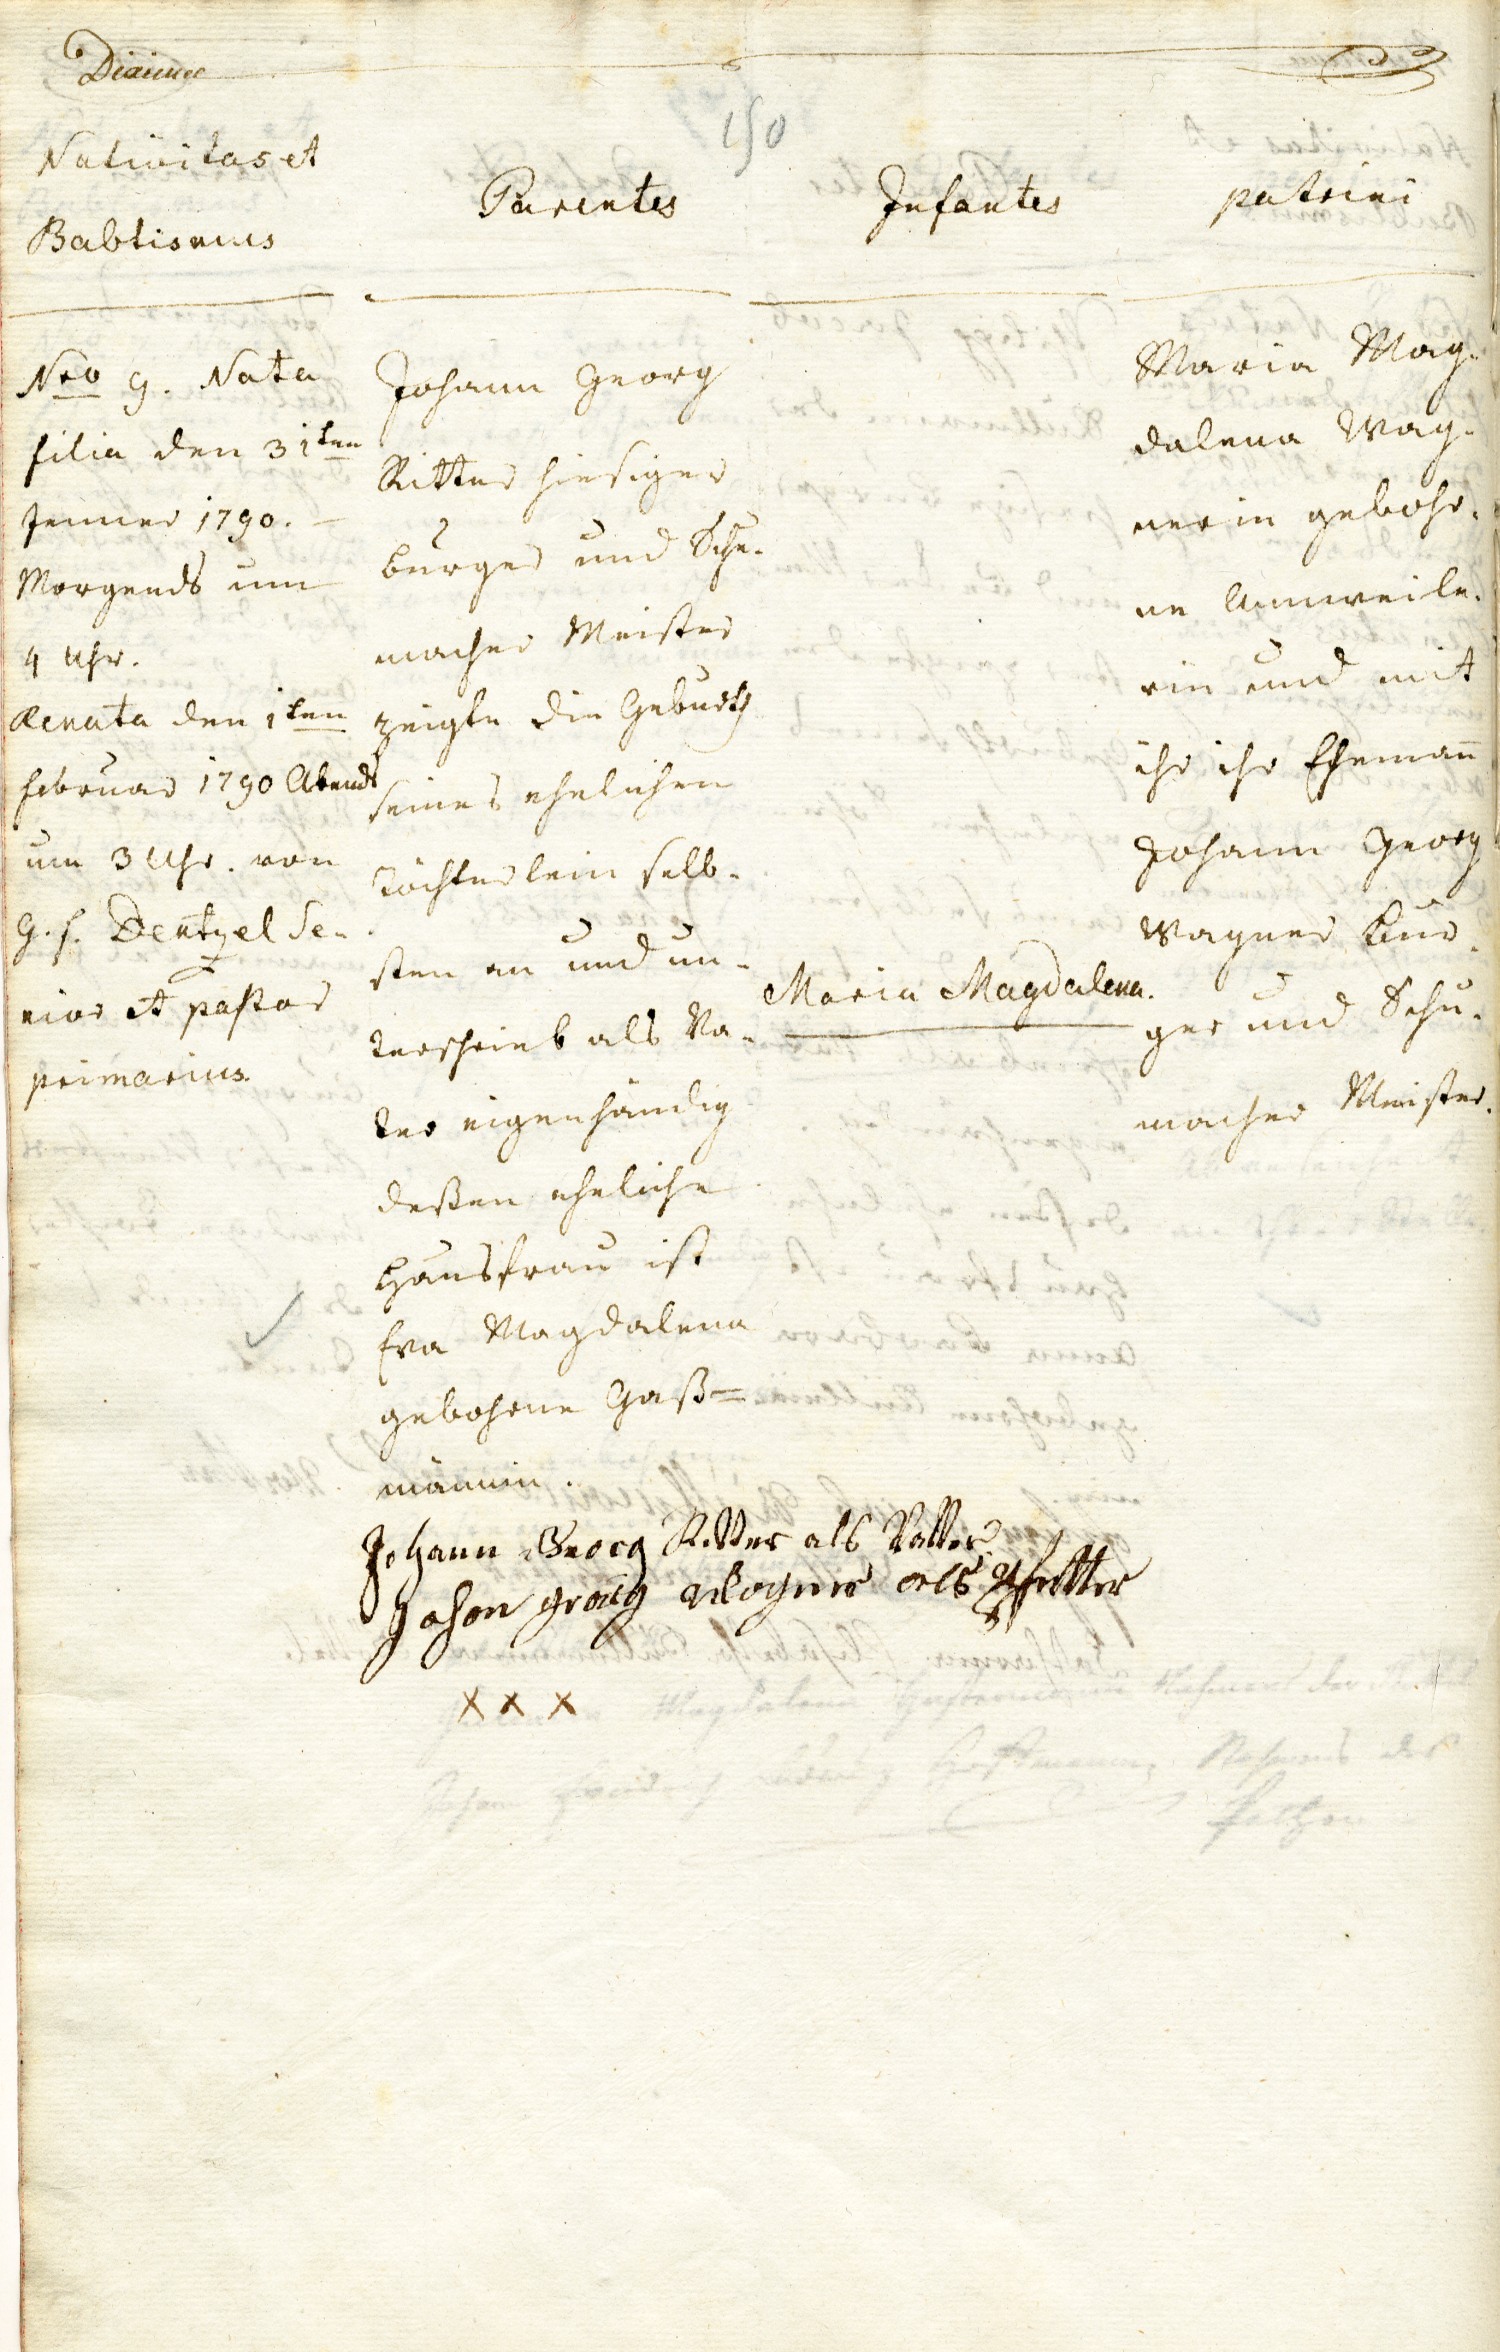 150
Nativitas et
Babtismus
Nro 9. Nata
filia den 31ten
Jenner 1790.
Morgends um
4 Uhr.
Renata den 1ten
Februar 1790 Abends
um 3 Uhr. von
G. F. Dentzel Se-
nior et pastor
primarius.
Parentes
Johann Georg
Ritter hiesiger
burger und Schu-
macher Meister
zeigte die Geburth
seines ehelichen
Töchterlein selb-
sten an und un-
terschrieb als Va-
ter eigenhändig
deßen eheliche
Hausfrau ist
Eva Magdalena
gebohrne Gaß=
männin.
Infantes
Maria Magdalena.
patrini
Maria Mag-
dalena Wag-
nerin gebohr-
ne Annweile-
rin und mit
ihr ihr Ehemann
Johann Georg
Wagner Bur-
ger und Schu-
macher Meister.
Johann Georg Ritter als Vatter
Johan georg Wagner als Pfetter
x x x